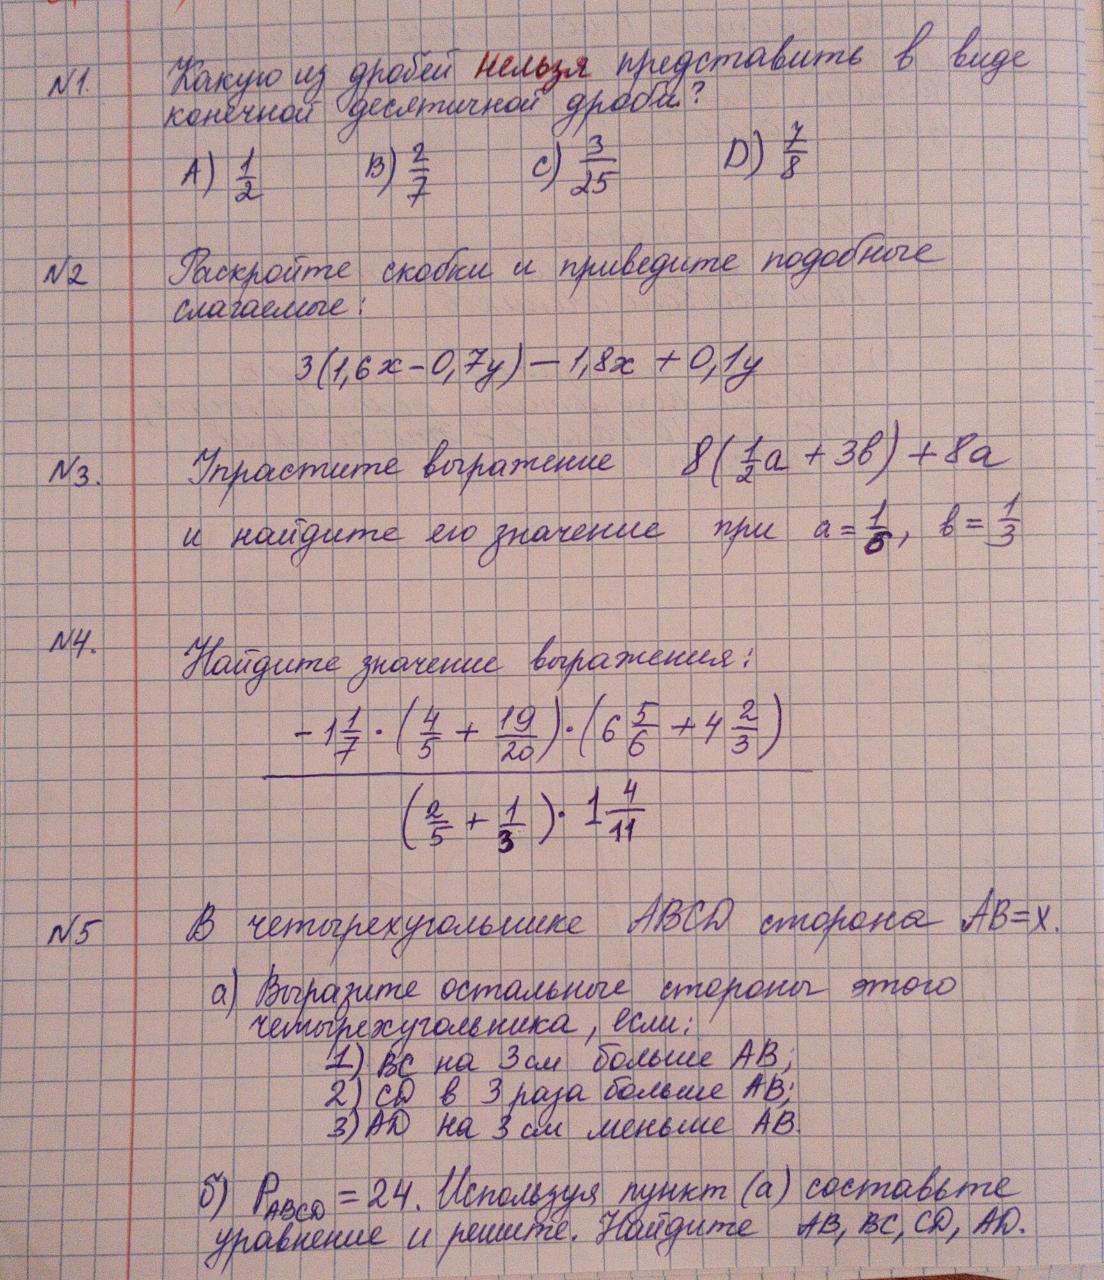 N1. Какую из дробей нельзя представить в виде
конечной десятичной дроби?
A) 1/2 B) 2/7 C) 3/25 D) 7/8
N2 Раскройте скобки и приведите подобные
слагаемые:
3(1,6x-0,7y)-1,8x+0,1y
N3. Упрастите выражение 8(1/2a+3b)+8a
и найдите его значение при a=1/6, b=1/3
N4.
Найдите значение выражения:
-1 1/7 · (4/5 + 19/20) · (6 5/6 + 4 2/3)
(2/5 + 1/3) · 1 4/11
N5 В четырехугольнике ABCD сторона AB=x.
а) Выразите остальные стороны этого
четырехугольника, если:
1) BC на 3 см больше AB;
2) CD в 3 раза больше AB;
3) AD на 3 см меньше AB.
б) P ABCD = 24. Используя пункт (а) составьте
уравнение и решите. Найдите AB, BC, CD, AD.